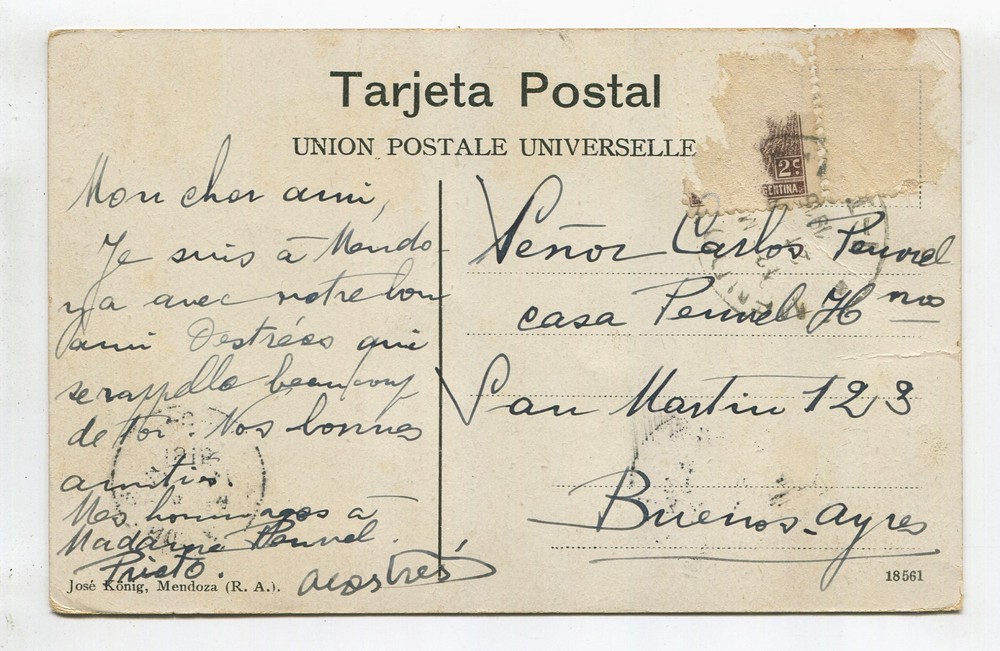 Tarjeta Postal
UNION POSTALE UNIVERSELLE
2c
ENTINA
Mon cher ami,
Je suis à Mendo-
za avec notre bon
ami Destrées qui
se rappelle beaucoup
de toi. Nos bonnes
amitiés.
Mes hommages à
Madame
Prieto.
José König, Mendoza (R. A.).
Señor Carlos
casa Hnos
San Martin 123
Buenos-Ayres
18561